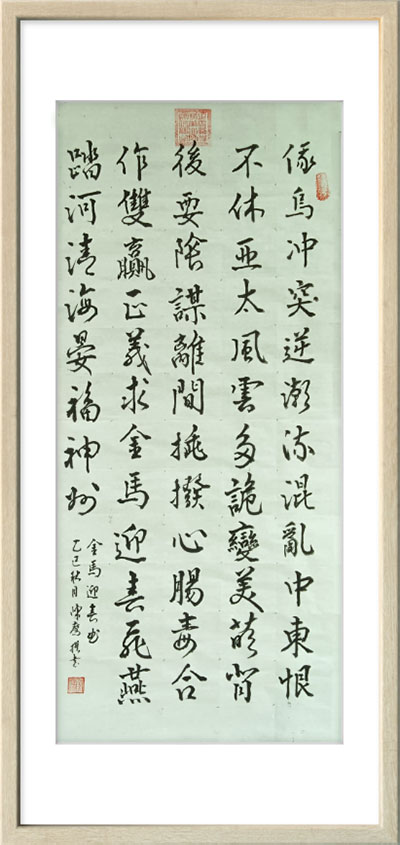 俄烏冲突逆潮流混亂中東恨
不休亞太風雲多詭變美英背
後耍陰謀離間挑撥心腸毒合
作雙贏正義求金馬迎春飛燕
踏河清海晏福神州
金馬迎春
乙巳秋月陳